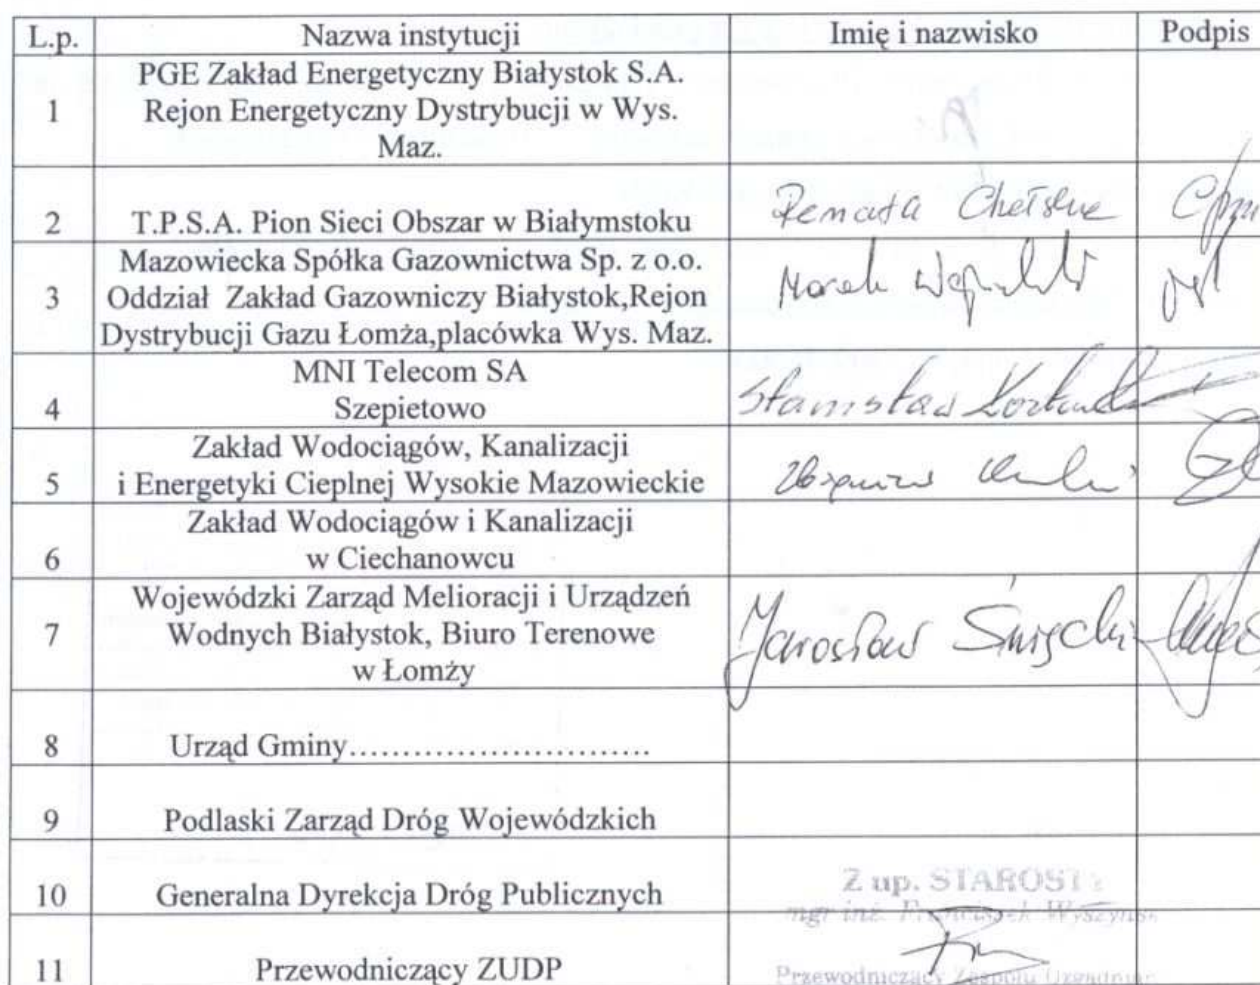 L.p. Nazwa instytucji Imię i nazwisko Podpis
PGE Zakład Energetyczny Białystok S.A.
1 Rejon Energetyczny Dystrybucji w Wys.
Maz.
2 T.P.S.A. Pion Sieci Obszar w Białymstoku Renata
Mazowiecka Spółka Gazownictwa Sp. z o.o.
3 Oddział Zakład Gazowniczy Białystok,Rejon Marek
Dystrybucji Gazu Łomża,placówka Wys. Maz.
MNI Telecom SA
4 Szepietowo Stanisław
Zakład Wodociągów, Kanalizacji
5 i Energetyki Cieplnej Wysokie Mazowieckie Zbigniew
Zakład Wodociągów i Kanalizacji
6 w Ciechanowcu
Wojewódzki Zarząd Melioracji i Urządzeń
7 Wodnych Białystok, Biuro Terenowe Jarosław Święcki
w Łomży
8 Urząd Gminy............................
9 Podlaski Zarząd Dróg Wojewódzkich
Z up. STAROSTY
10 Generalna Dyrekcja Dróg Publicznych
mgr inż. Franciszek Wyszyńsk
11 Przewodniczący ZUDP
Przewodniczący Zespołu Uzgadnian